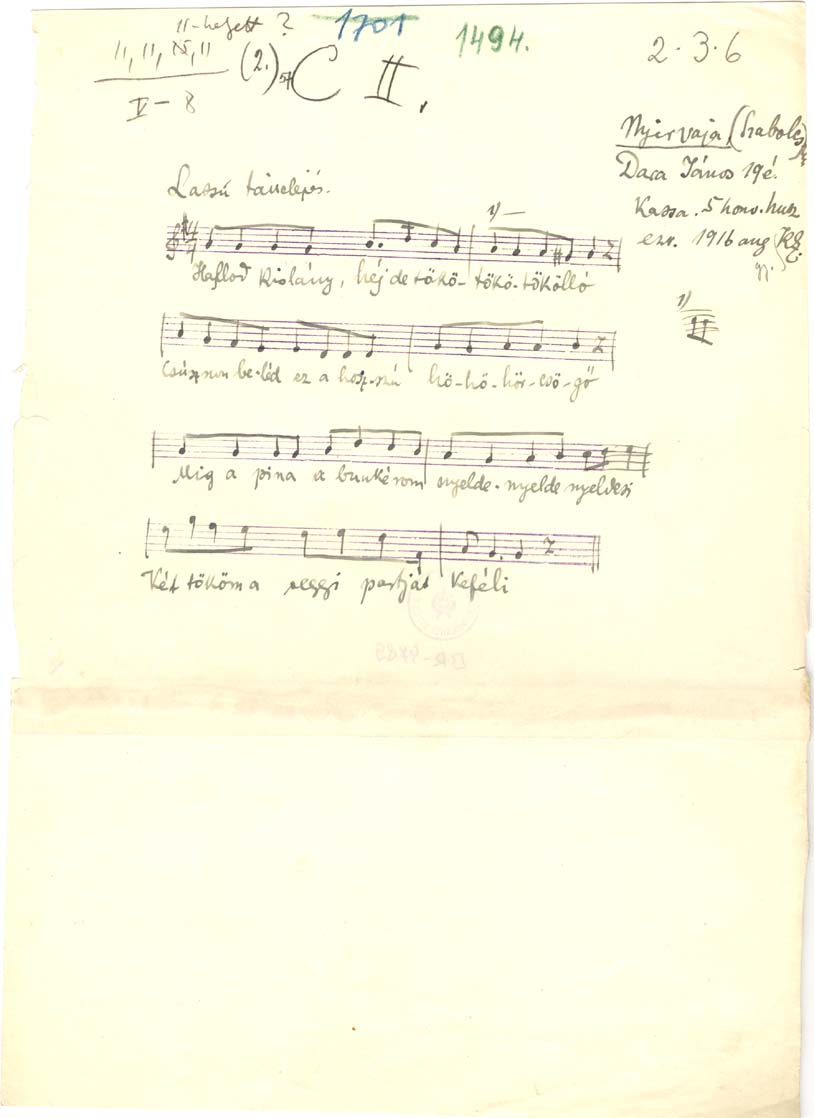 11-helyett ?
1701
1494.
2. 3. 6
11, 11, 15, 11
(2.) C II.
V - 8
Nyirvaja (Szabolcs)
Dara János 19é.
Kassa. 5 honv. husz
ezr. 1916 aug
Lassú
1)
Hallod kislány, héj de tökö- tökö-tökölló
1)
Csússzon be-léd ez a hosz-szú hö-hö-hör-csö-gő
Mig a pina a bunkérom nyelde-nyelde nyeldesi
Két tököm a seggi partját keféli